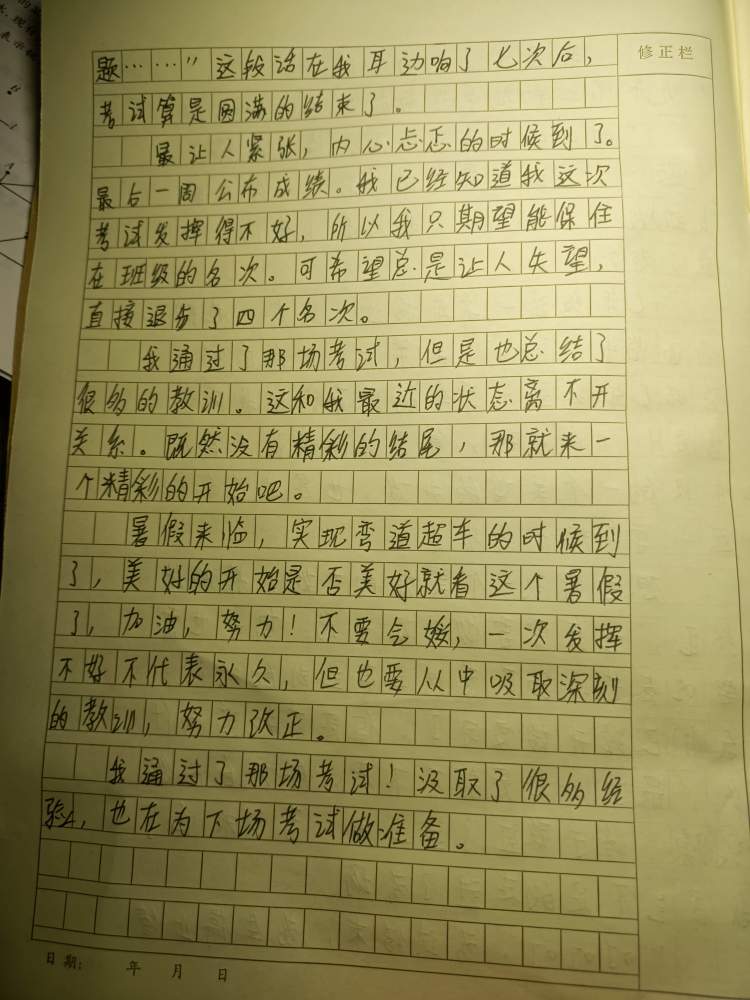 修正栏
题……”这段话在我耳边响了七次后，
考试算是圆满的结束了。
最让人紧张，内心忐忑的时候到了。
最后一周公布成绩。我已经知道我这次
考试发挥得不好，所以我只期望能保住
在班级的名次。可希望总是让人失望，
直接退步了四个名次。
我通过了那场考试，但是也总结了
很多的教训。这和我最近的状态离不开
关系。既然没有精彩的结尾，那就来一
个精彩的开始吧。
暑假来临，实现弯道超车的时候到
了，美好的开始是否美好就看这个暑假
了，加油，努力！不要气馁，一次发挥
不好不代表永久，但也要从中吸取深刻
的教训，努力改正。
我通过了那场考试！汲取了很多经
验，也在为下场考试做准备。
日期： 年 月 日